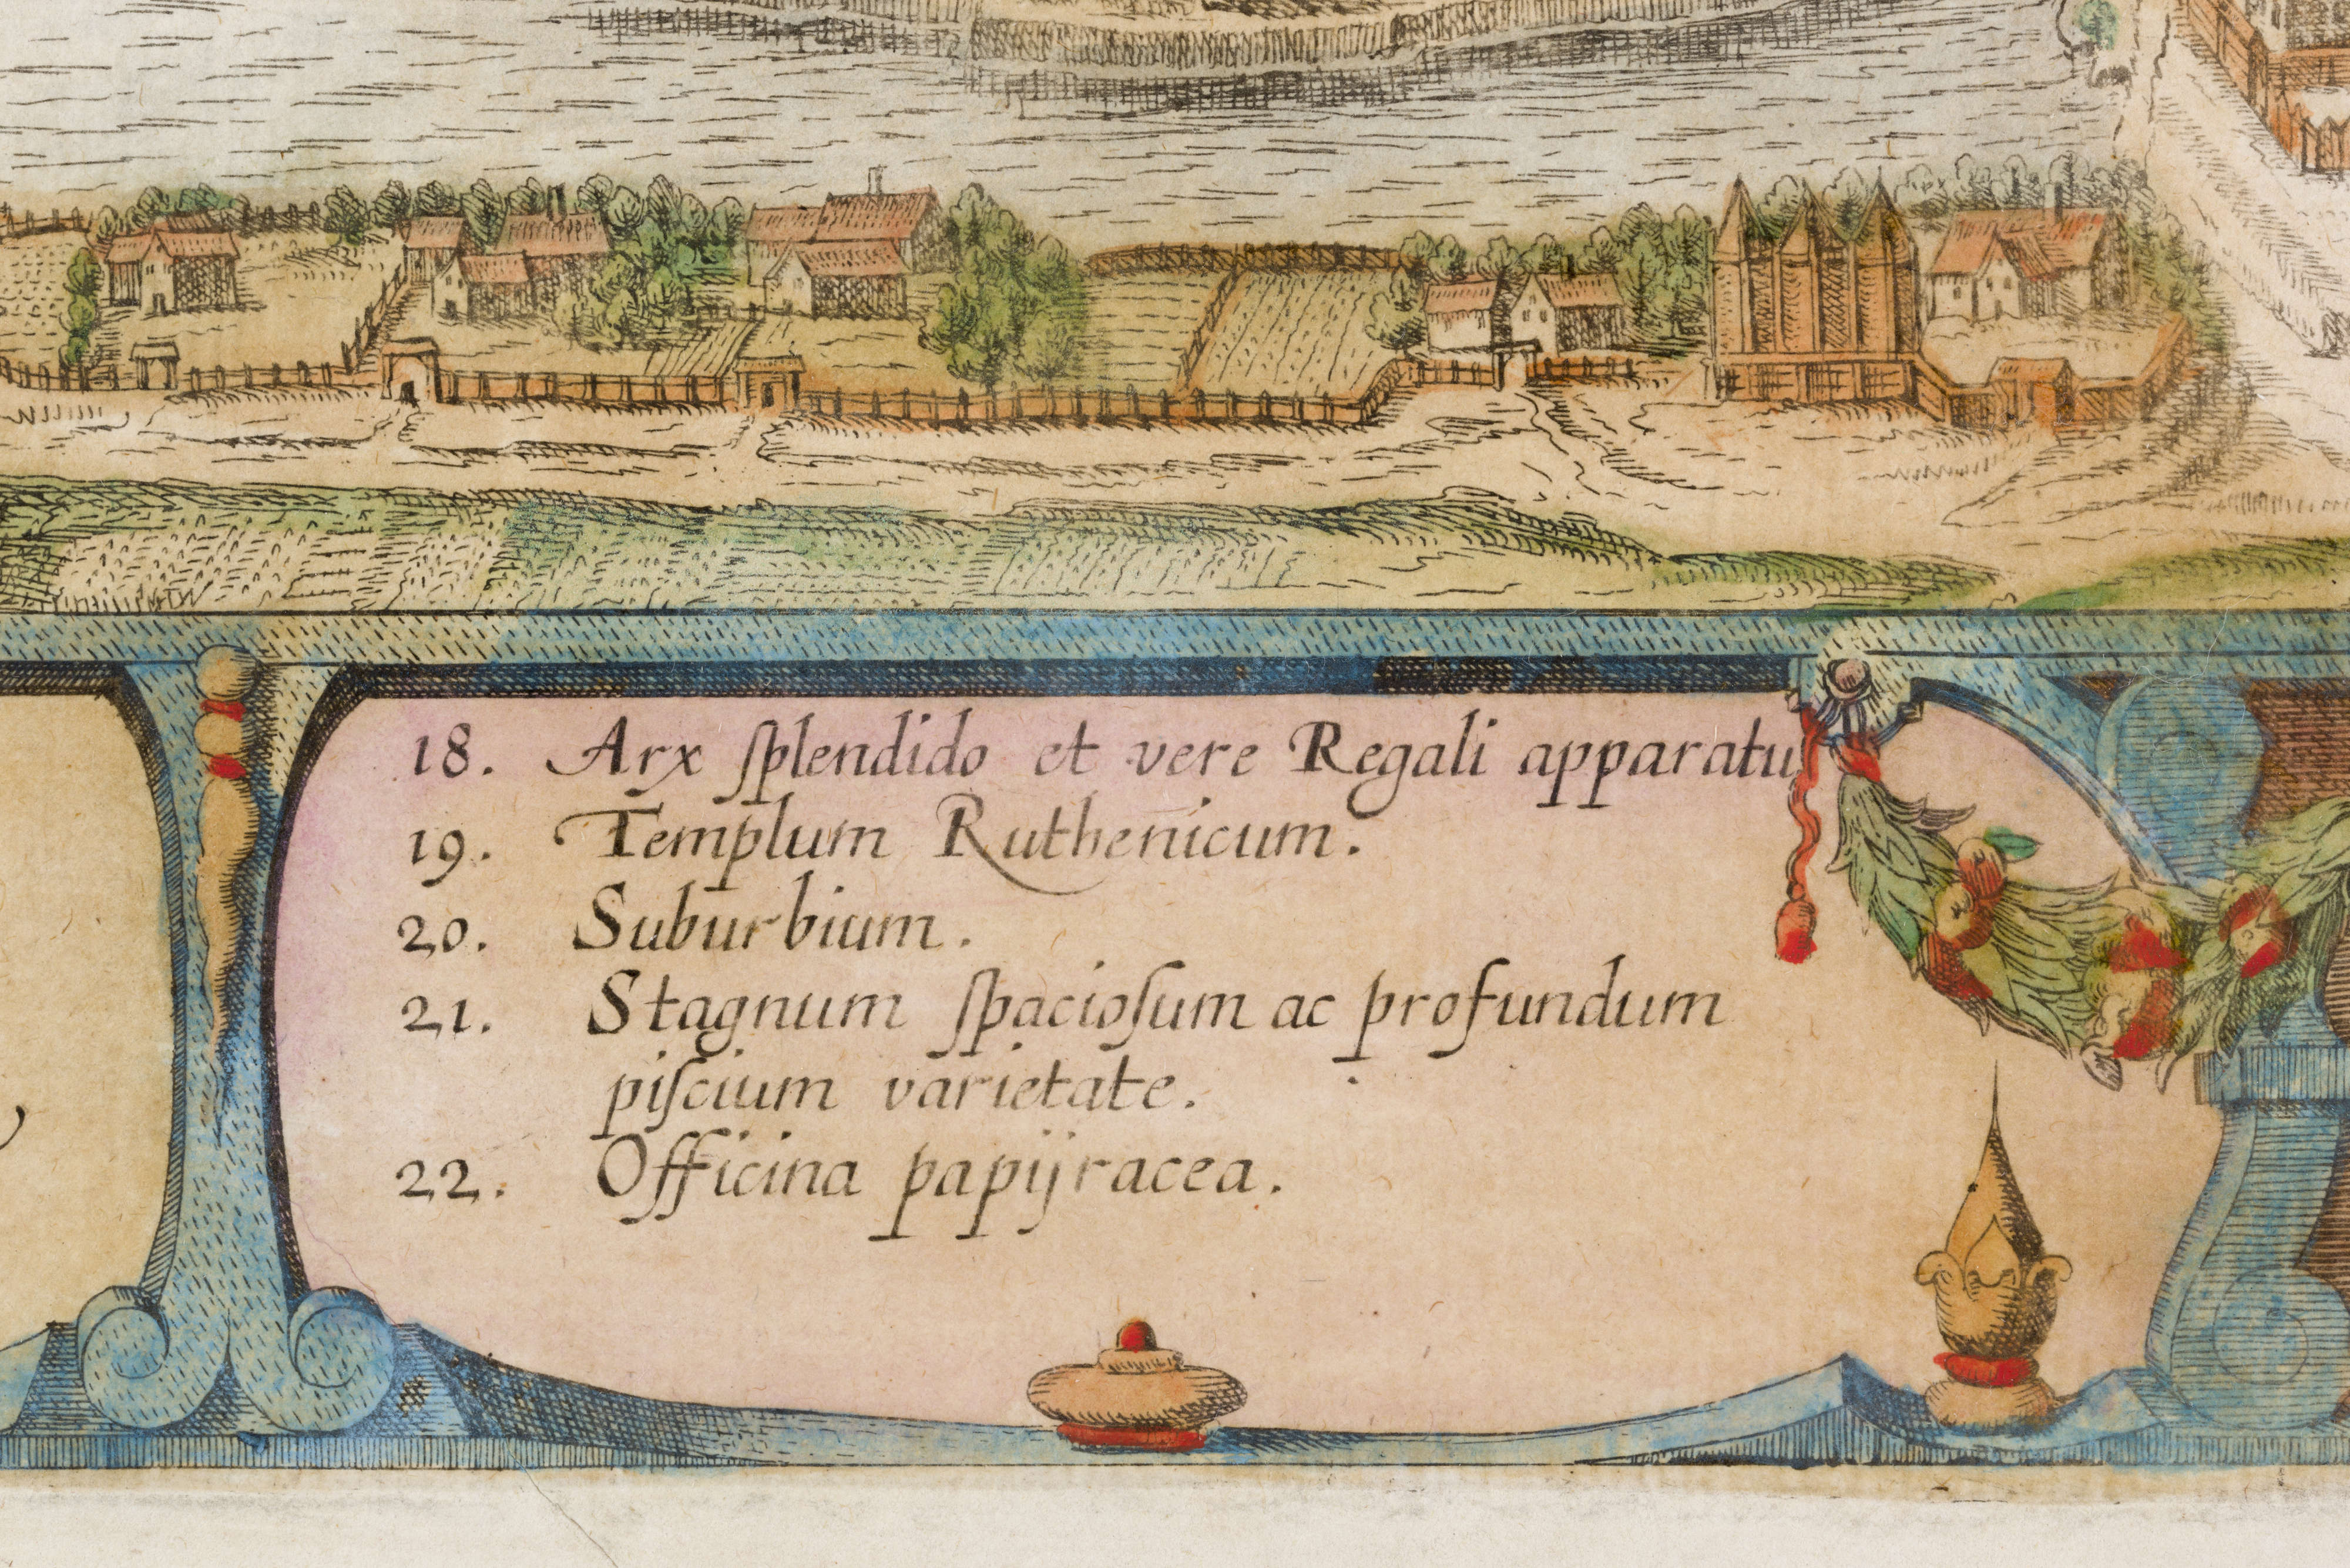 18. Arx ſplendido et vere Regali apparatu
19. Templum Ruthenicum.
20. Suburbium.
21. Stagnum ſpacioſum ac profundum
piſcium varietate.
22. Officina papijracea.